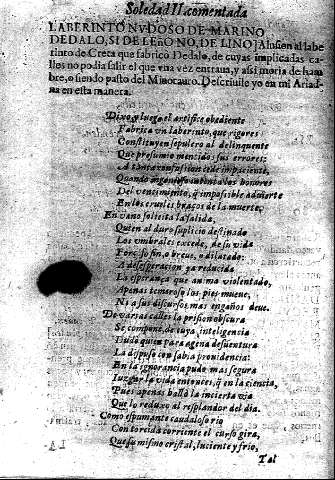 Soledad II. comentada
LABERINTO NVDOSO DE MARINO
DEDALO, SI DE LEñO NO, DE LINO] Alusion al labe
rinto de Creta que fabricò Dedalo, de cuyas implicadas ca-
lles no podia salir el que vna vez entraua, y assi moria de ham
bre, o siendo pasto del Minotauro. Descriuile yo en mi Ariad
na en esta manera.
Dixo, y luego el artifice obediente
Fabrica vn laberinto, que rigores
Constituyen sepulcro al delinquente
Que presumio mentidos sus errores:
A tanta confusion cede impaciente,
Quando ingenioso intenta los honores
Del vencimiento, q̃ impossible aduierte
En los crueles braços de la muerte.
En vano solicita la salida,
Quien al duro suplicio destinado
Los vmbrales excede, de su vida
Forçoso fin, o breue, o dilatado:
A desesperacion ya reducida
La esperança que anima violentado,
Apenas temeroso los pies mueue,
Ni a sus discursos mas engaños deue.
De varias calles la prision obscura
Se compone, de cuya inteligencia
Dudò quien para agena desuentura
La dispuso con sabia prouidencia:
En la ignorancia pudo mas segura
Iuzgar la vida entonces, q̃ en la ciencia,
Pues apenas hallò la incierta via
Que lo reduxo al resplandor del dia.
Como espumante caudaloso rio
Con torcida corriente el curso gira,
Que su mismo cristal, luciente y frio,
Tal